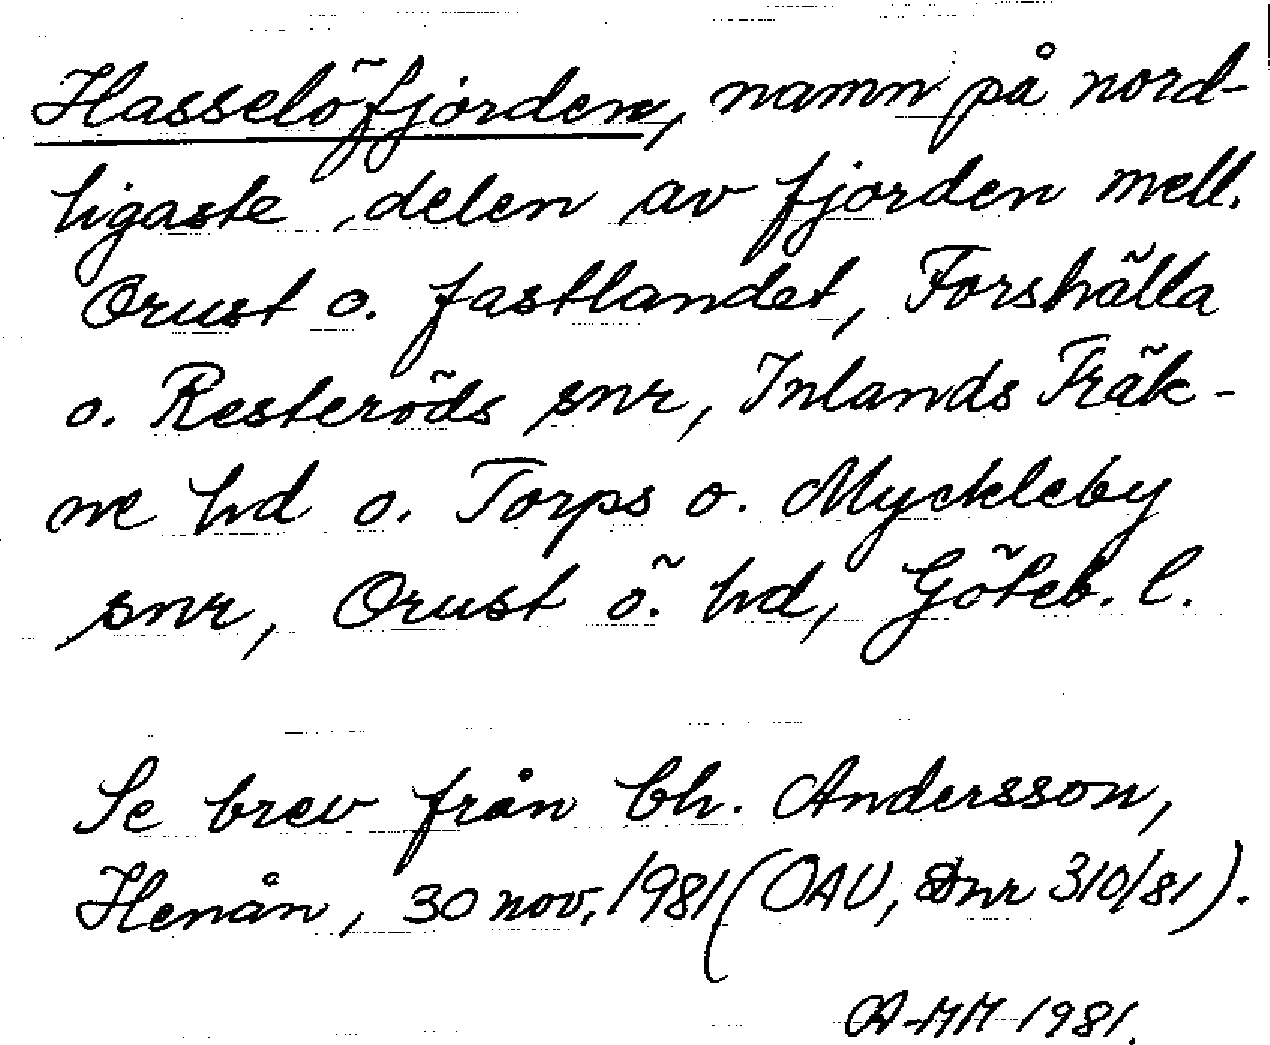 Hasselöfjorden, namn på nord-
ligaste delen av fjorden mell.
Orust o. fastlandet, Forshälla
o. Resteröds snr, Inlands Fräk-
ne hd o. Torps o. Myckleby
snr, Orust ö. hd, Göteb. l.
Se brev från bh. Andersson,
Henån, 30 nov. 1981 (OAU, Dnr 310/81).
A-MM 1981.